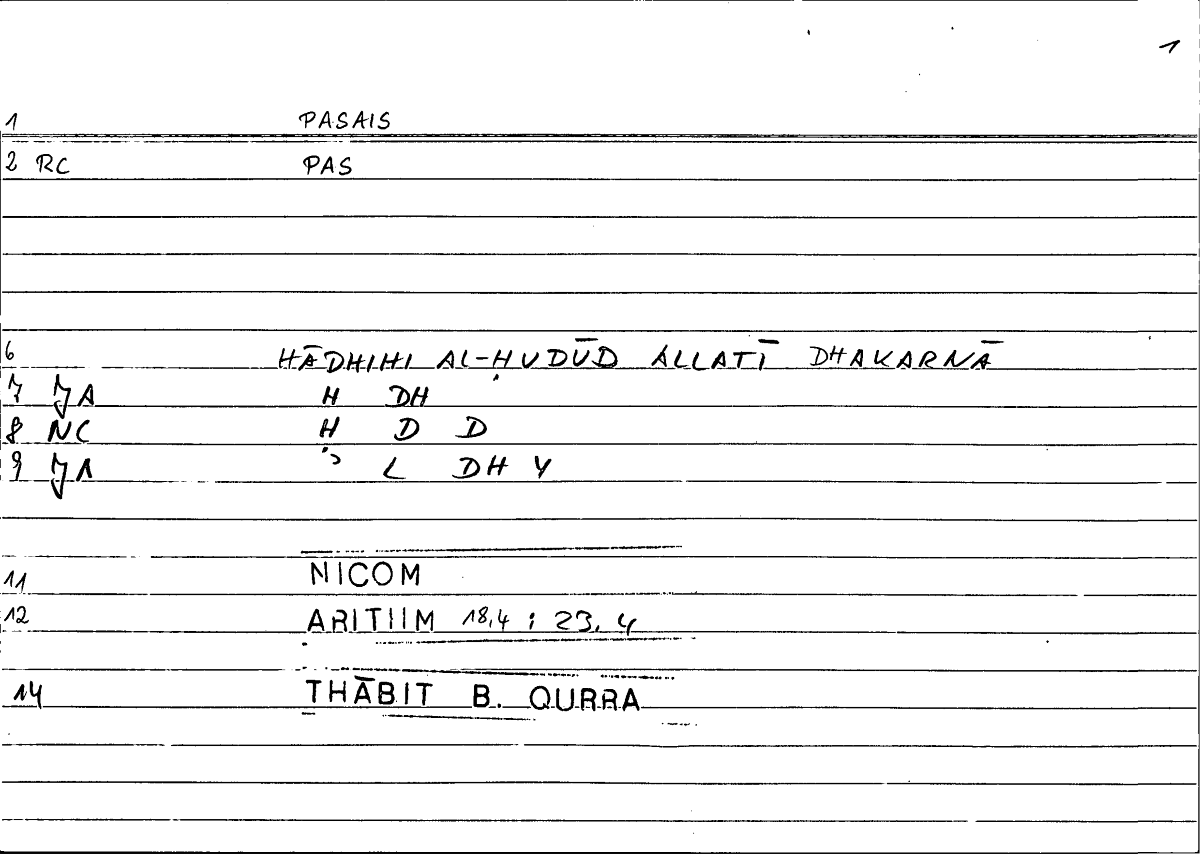 1
1 PASAIS
2 RC PAS
6 HĀDHIHI AL-ḤUDŪD ALLATĪ DHAKARNĀ
7 JA H DH
8 NC Ḥ D D
9 JA ʾ L DH Y
11 NICOM
12 ARITIIM 18,4 ; 23,4
14 THĀBIT B. QURRA